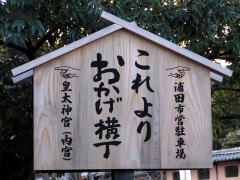 浦田市営駐車場
これより
おかげ横丁
皇太神宮(内宮)